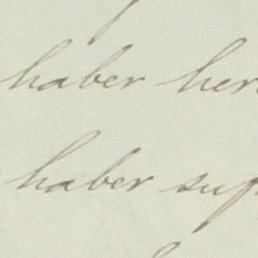 haber her
haber suf